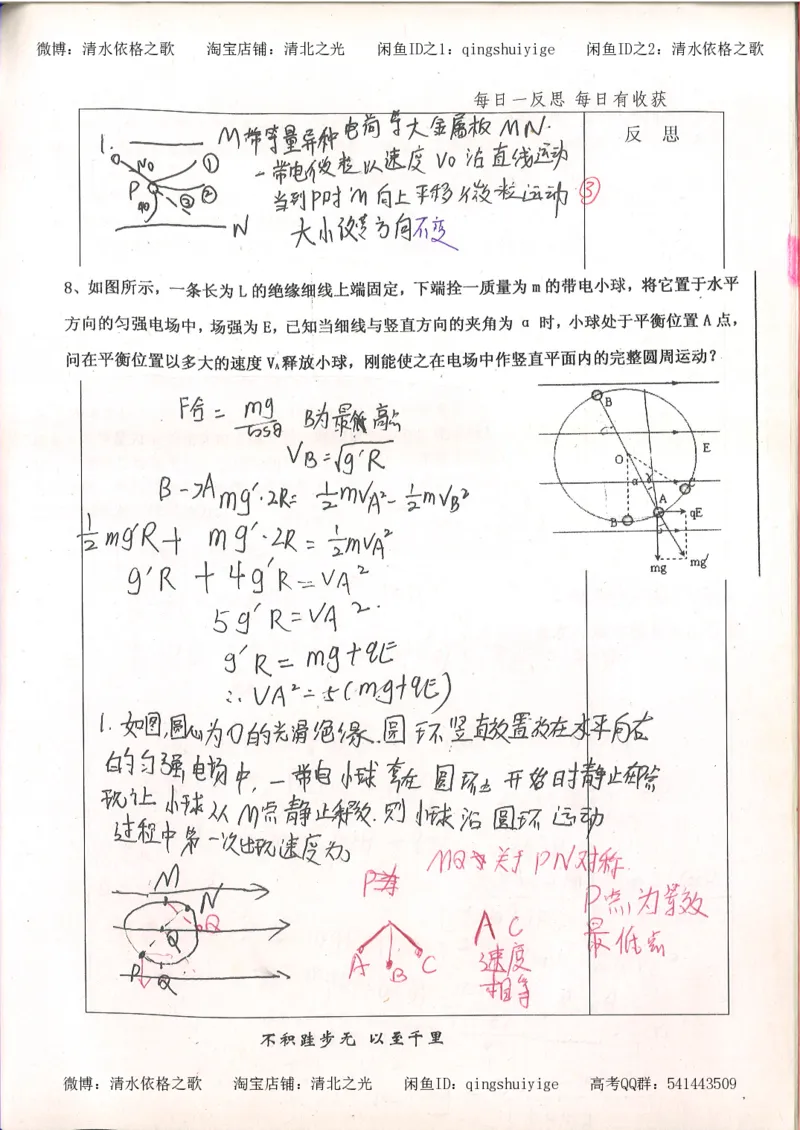 微博：清水依格之歌 淘宝店铺：清北之光 闲鱼ID之1：qingshuiyige 闲鱼ID之2：清水依格之歌
每日一反思 每日有收获
反 思
1.
M带等量异种电荷 大金属板MN.
一带电微粒以速度V0沿直线运动
当到P时M向上平移 微粒运动 ③
大小 方向不变
P ① ② ③
N
8、如图所示，一条长为 L 的绝缘细线上端固定，下端拴一质量为 m 的带电小球，将它置于水平
方向的匀强电场中，场强为 E，已知当细线与竖直方向的夹角为 α 时，小球处于平衡位置 A 点，
问在平衡位置以多大的速度 VA释放小球，刚能使之在电场中作竖直平面内的完整圆周运动？
B
E
O
α
C
A
B
qE
mg mg′
F合 = mg/cosθ B为最高点
VB = √g′R
B->A mg′·2R = ½mVA² - ½mVB²
½mg′R + mg′·2R = ½mVA²
g′R + 4g′R = VA²
5g′R = VA².
g′R = mg+qE
∴ VA² = 5(mg+qE)
1. 如图,圆心为O的光滑绝缘圆环竖直放置放在水平向右
的匀强电场中,一带电小球套在圆环上 开始时静止在P点
现让小球从M点静止释放.则小球沿圆环运动
过程中第一次出现速度为0
MQ 关于PN对称
P点为等效
最低点
M
N
Q
Q
P Q
A B C
A C
速度
相等
不积跬步无 以至千里
微博：清水依格之歌 淘宝店铺：清北之光 闲鱼ID：qingshuiyige 高考QQ群：541443509